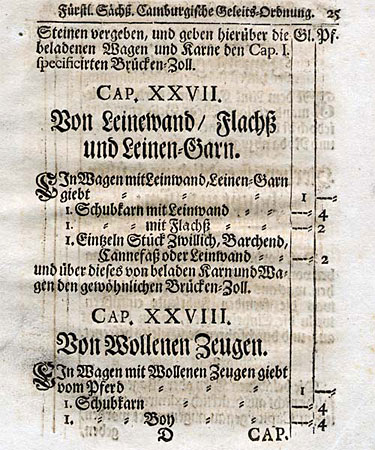 Fürstl. Sächß. Camburgische Geleits-Ordnung. 25
Steinen vergeben, und geben hierüber die Gl. Pf.
beladenen Wagen und Karne den Cap. I.
specificirten Brücken-Zoll.
CAP. XXVII.
Von Leinewand/ Flachß
und Leinen-Garn.
EIn Wagen mit Leinwand, Leinen-Garn
giebt - - - 1 —
1. Schubkarn mit Leinwand - - — 4
1. - - mit Flachß - - — 2
1. Eintzeln Stück Zwillich, Barchend,
Cannefaß oder Leinwand - - — 2
und über dieses von beladen Karn und Wa-
gen den gewöhnlichen Brücken-Zoll.
CAP. XXVIII.
Von Wollenen Zeugen.
EIn Wagen mit Wollenen Zeugen giebt
vom Pferd - - - 1 —
1. Schubkarn - - - — 4
1. - Boy - - — 4
D CAP.